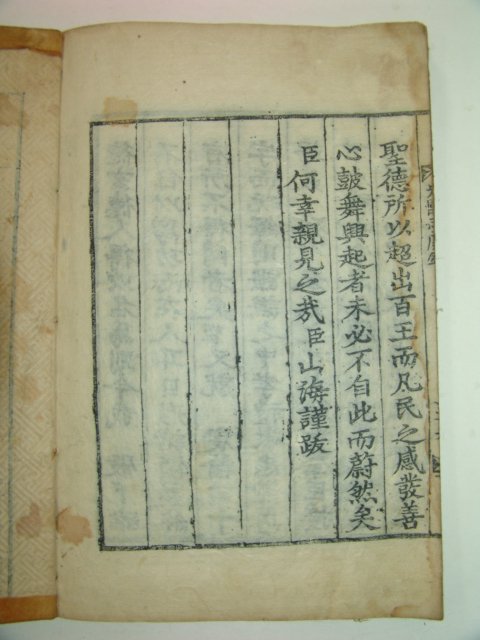 聖德所以超出百王而凡民之感發善
心鼓舞興起者未必不自此而蔚然矣
臣何幸親見之哉臣山海謹跋